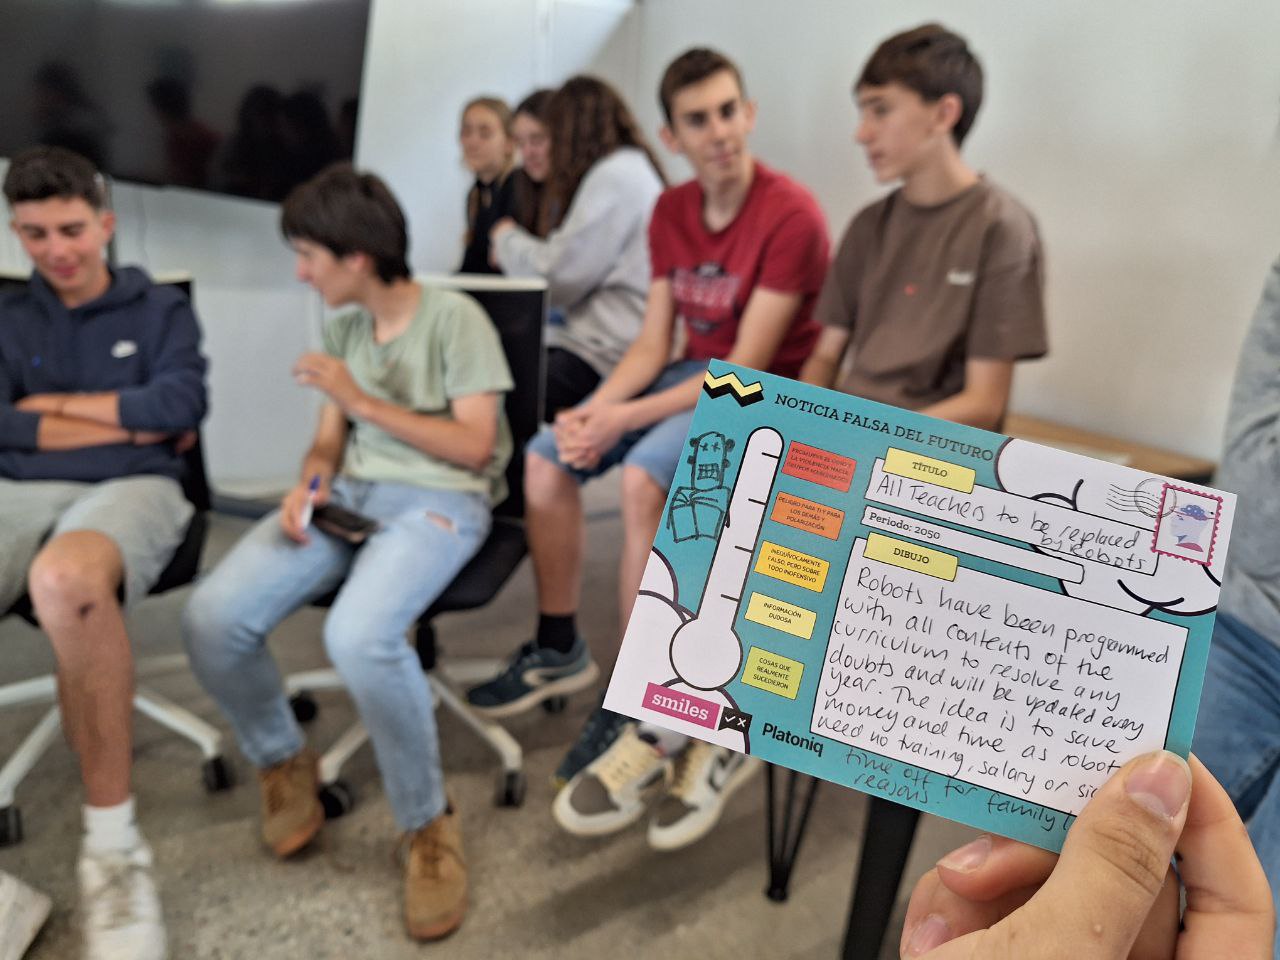 NOTICIA FALSA DEL FUTURO
PROMUEVE EL ODIO Y
LA VIOLENCIA HACIA
GRUPOS MARGINADOS
PELIGRO PARA TI Y PARA
LOS DEMÁS Y
POLARIZACIÓN
INEQUÍVOCAMENTE
FALSO, PERO SOBRE
TODO INOFENSIVO
INFORMACIÓN
DUDOSA
COSAS QUE
REALMENTE
SUCEDIERON
smiles
Platoniq
TÍTULO
All Teachers to be replaced
by Robots
Periodo: 2050
DIBUJO
Robots have been programmed
with all contents of the
curriculum to resolve any
doubts and will be updated every
year. The idea is to save
money and time as robot
need no training, salary or
time off for family
reasons.